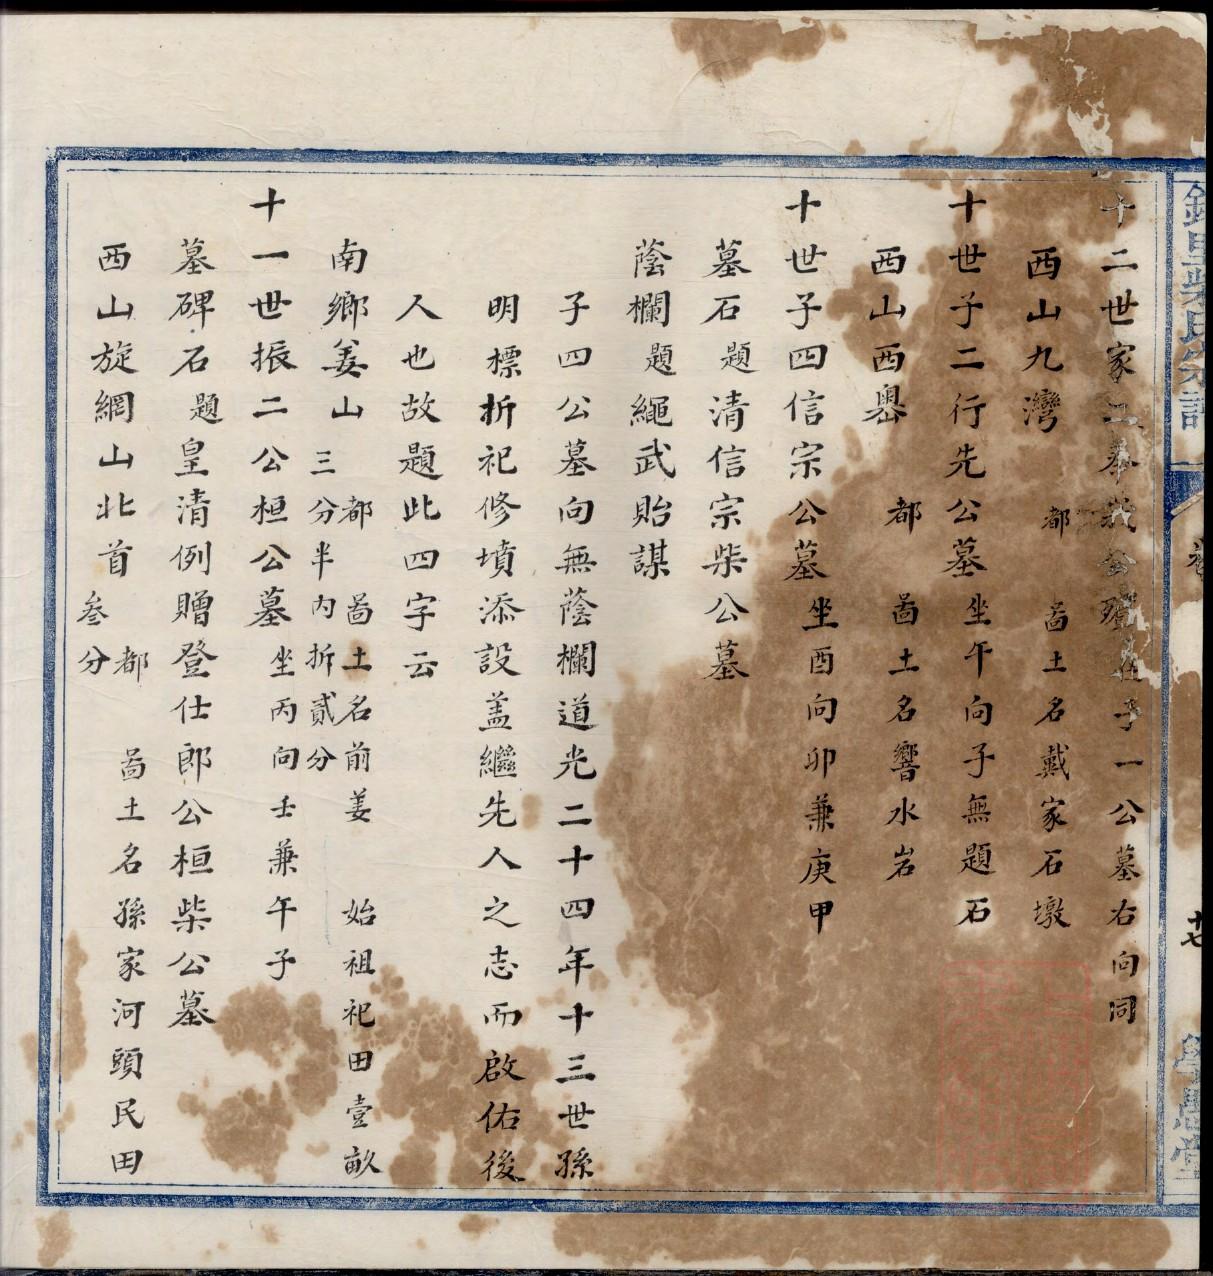 十二世家二
公墓右向同
西山九灣 都 啚土名戴家石墩
十世子二行先公墓坐午向子無題石
西山西嶴 都 啚土名響水岩
十世子四信宗公墓坐酉向卯兼庚甲
墓石題清信宗柴公墓
蔭欄題繩武貽謀
子四公墓向無蔭欄道光二十四年十三世孫
明標折祀修墳添設盖繼先人之志而啟佑後
人也故題此四字云
南鄉姜山 都 啚土名前姜 始祖祀田壹畝
三分半內折貳分
十一世振二公桓公墓坐丙向壬兼午子
墓碑石題皇清例贈登仕郎公桓柴公墓
西山旋網山北首 都 啚土名孫家河頭民田
叁分
十七